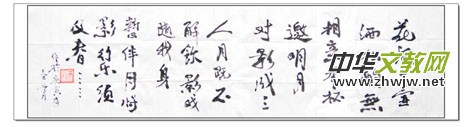 花间一壶
酒独酌無
相亲举杯
邀明月
对影成三
人月既不
解飲影徒
随我身
暫伴月将
影行乐须
及春……
中华文教网